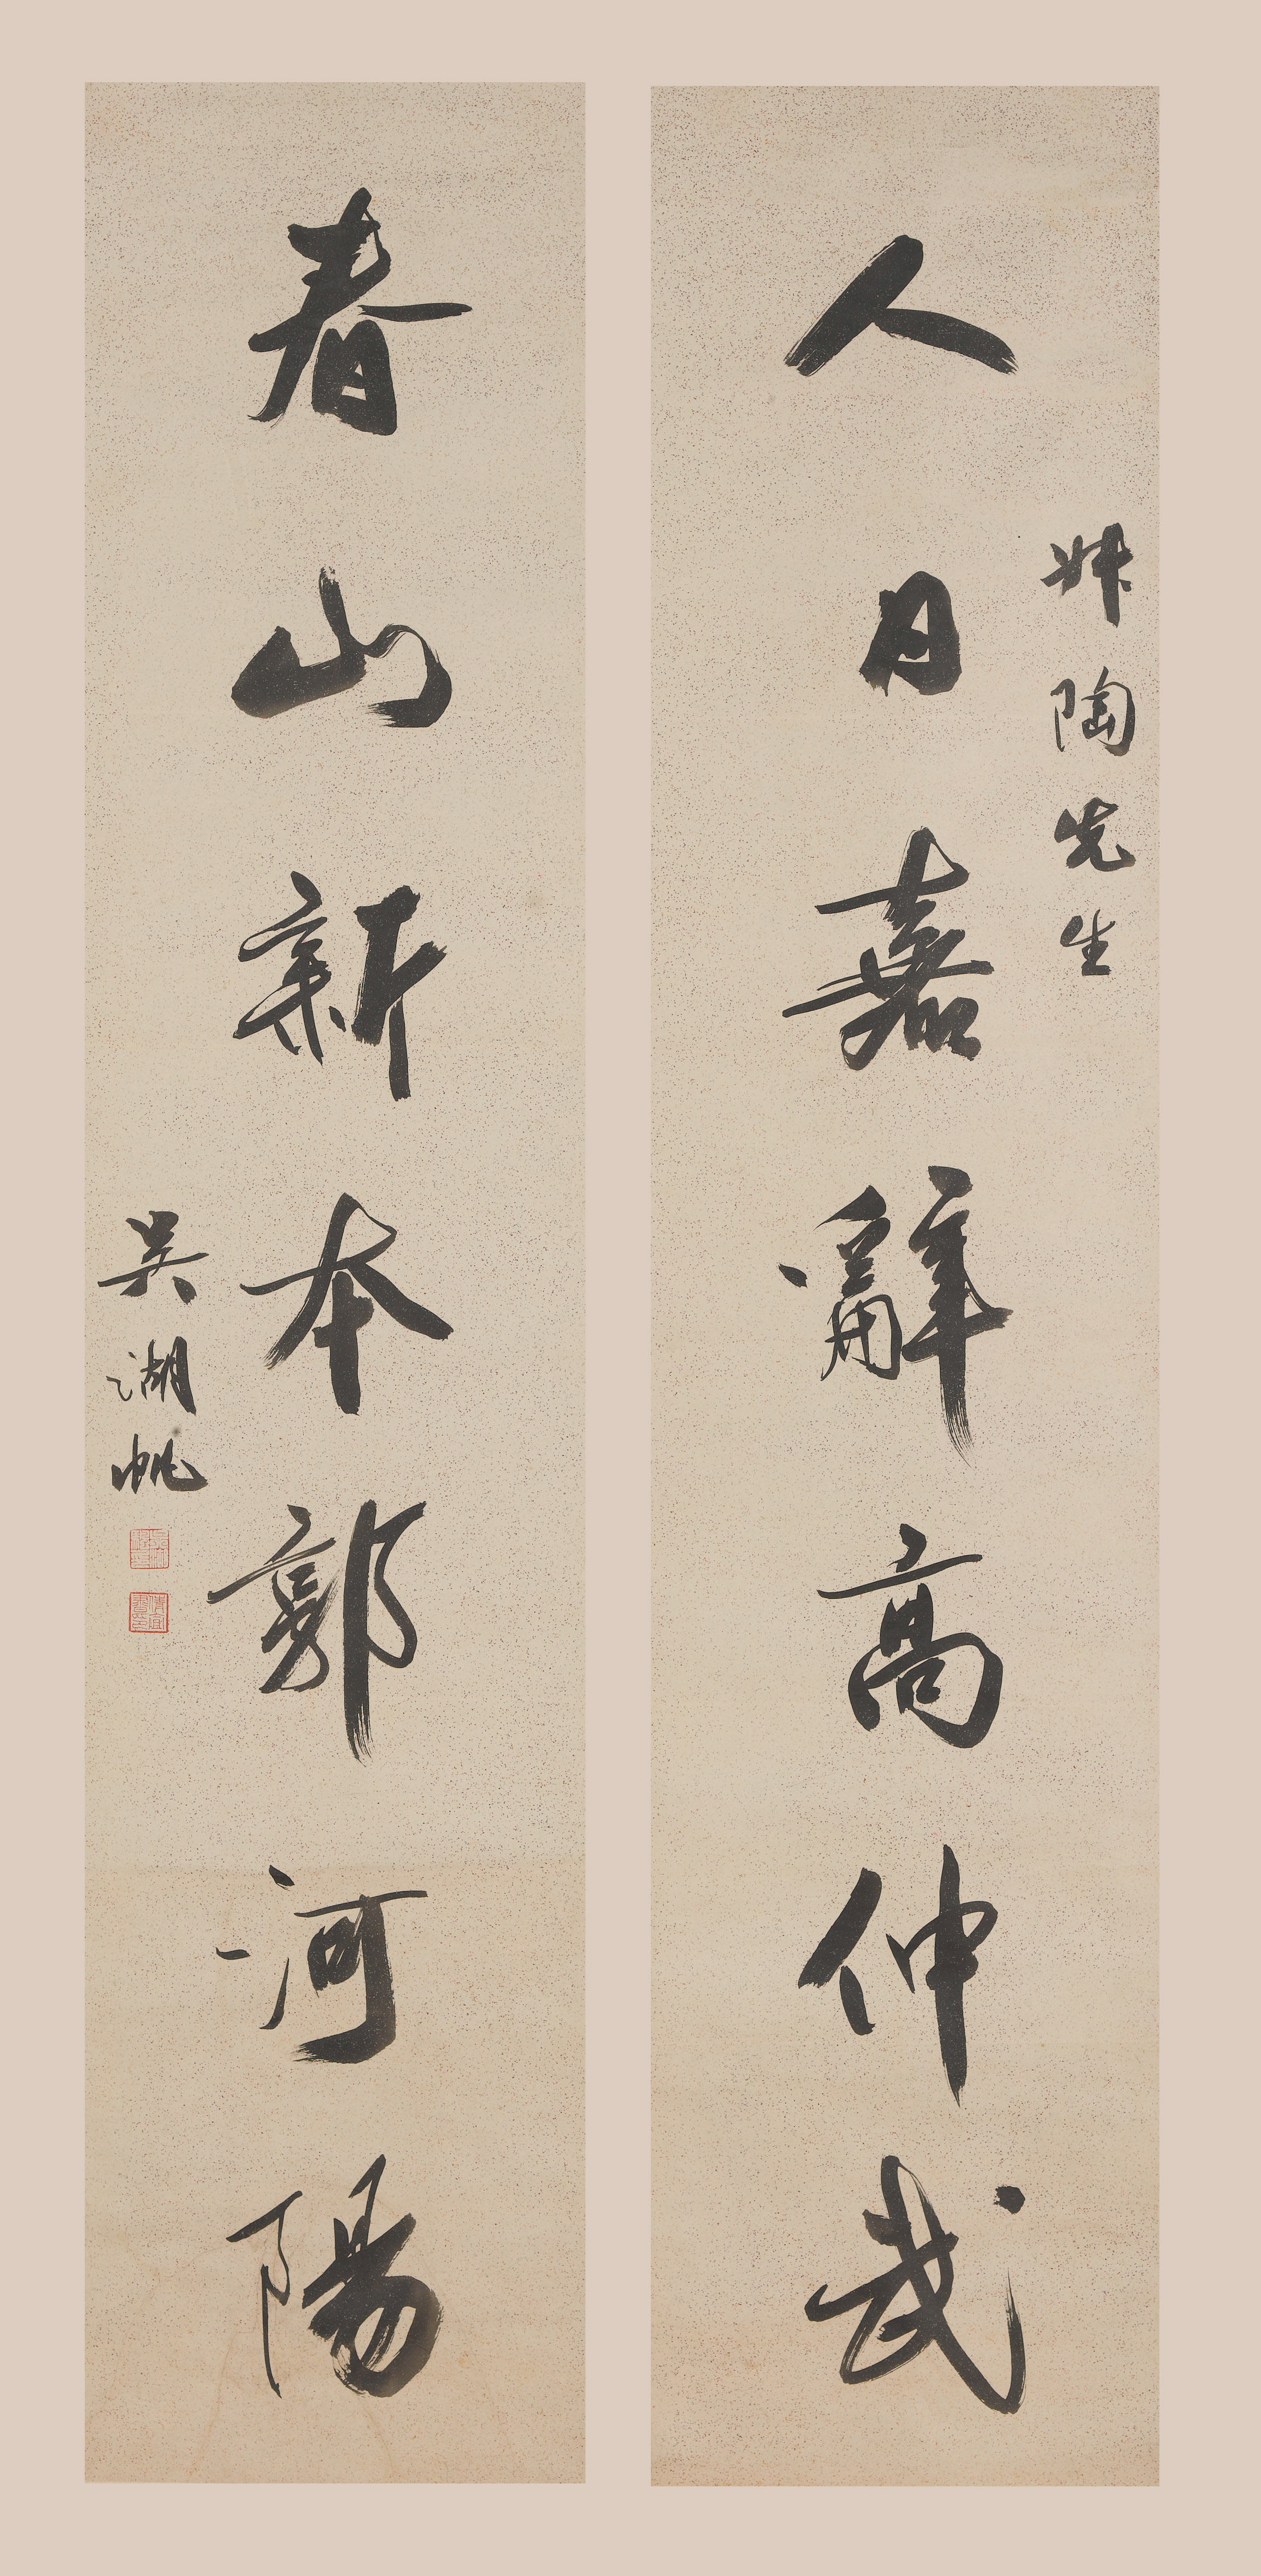 人日嘉辭高仲武
陶先生
春山新本郭河陽
吳湖帆